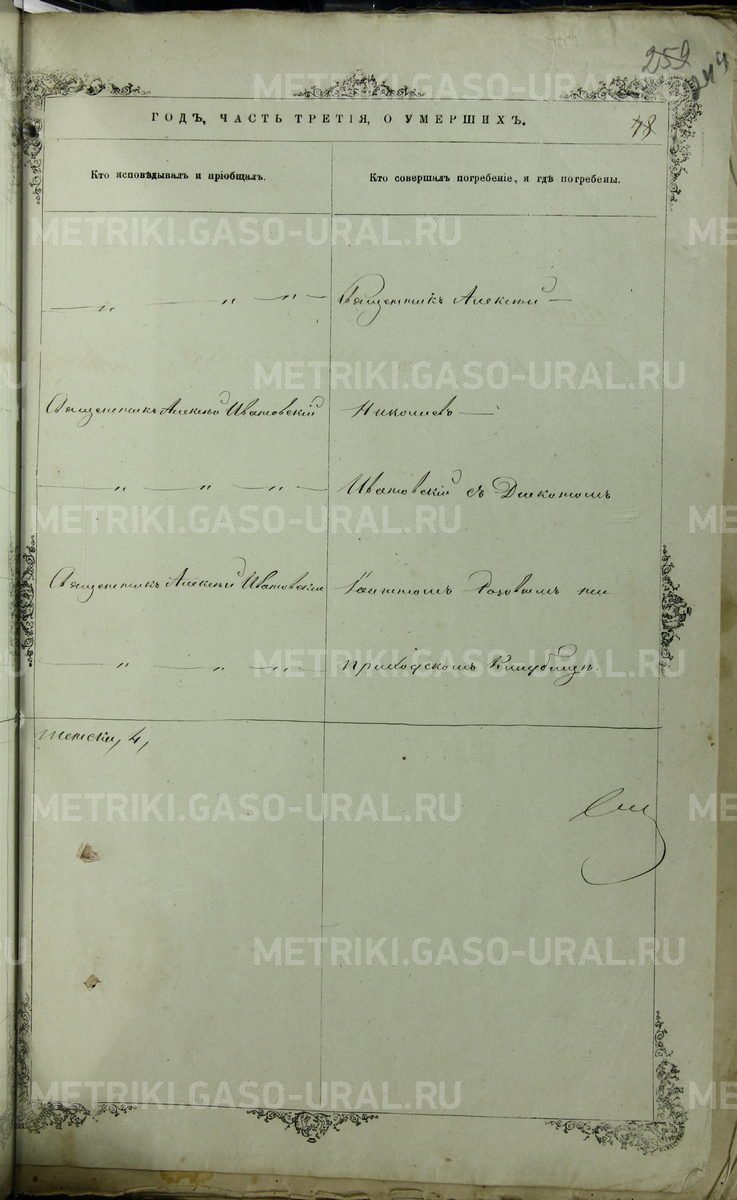 259
244
ГОДЪ, ЧАСТЬ ТРЕТІЯ, О УМЕРШИХЪ.
48
Кто исповѣдывалъ и пріобщалъ.
Кто совершалъ погребеніе, и гдѣ погребены.
— „ — „ — „ —
Священникъ Алексѣй —
Священникъ Алексѣй Ивановскій
Николаевъ —
— „ — „ — „ —
Ивановскій съ Діакономъ
Священникъ Алексѣй Ивановскій
на
— „ — „ — „ —
приходскомъ кладбищѣ.
женска, 4,
METRIKI.GASO-URAL.RU